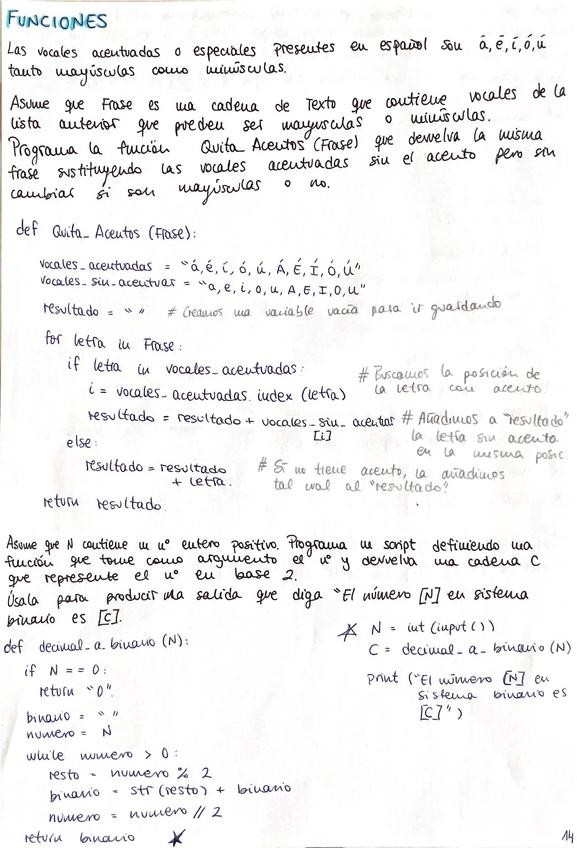 FUNCIONES
Las vocales acentuadas o especiales presentes en español son á, é, í, ó, ú
tanto mayúsculas como minúsculas.
Asume que Frase es una cadena de Texto que contiene vocales de la
lista anterior que pueden ser mayusculas o minúsculas.
Programa la función Quita Acentos (Frase) que devuelva la misma
frase sustituyendo las vocales acentuadas sin el acento pero sin
cambiar si son mayúsculas o no.
def Quita_Acentos (Frase):
vocales_acentuadas = "á, é, í, ó, ú, Á, É, Í, Ó, Ú"
vocales_sin_acentuar = "a, e, i, o, u, A, E, I, O, U"
resultado = " " # Creamos una variable vacía para ir guardando
for letra in Frase:
if letra in vocales_acentuadas:
i = vocales_acentuadas.index (letra)
# Buscamos la posición de
la letra con acento.
resultado = resultado + vocales_sin_acentuar
[i]
# Añadimos a "resultado"
la letra sin acento
en la misma posic
else:
resultado = resultado
+ letra.
# Si no tiene acento, la añadimos
tal cual al "resultado".
return resultado.
Asume que N contiene un nº entero positivo. Programa un script definiendo una
función que tome como argumento el nº y devuelva una cadena C
que represente el nº en base 2.
Úsala para producir una salida que diga "El número [N] en sistema
binario es [C].
def decimal_a_binario (N):
if N == 0:
return "0".
binario = " "
numero = N
while numero > 0:
resto = numero % 2
binario = str (resto) + binario
numero = numero // 2
return binario ★
★ N = int (input ())
C = decimal_a_binario (N)
print ("El número [N] en
sistema binario es
[C]")
14